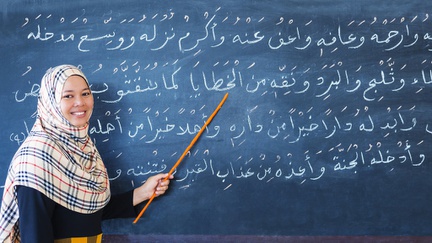 وَارْحَمْهُ وَعَافِهِ وَاعْفُ عَنْهُ وَأَكْرِمْ نُزُلَهُ وَوَسِّعْ مَدْخَلَهُ
وَثَلْجٍ وَبَرَدٍ وَنَقِّهِ مِنَ الْخَطَايَا كَمَا يُنَقَّى الثَّوْبُ
وَأَبْدِلْهُ دَارًا خَيْرًا مِنْ دَارِهِ وَأَهْلًا خَيْرًا مِنْ
وَأَدْخِلْهُ الْجَنَّةَ وَأَعِذْهُ مِنْ عَذَابِ الْقَبْرِ وَفِتْنَتِهِ